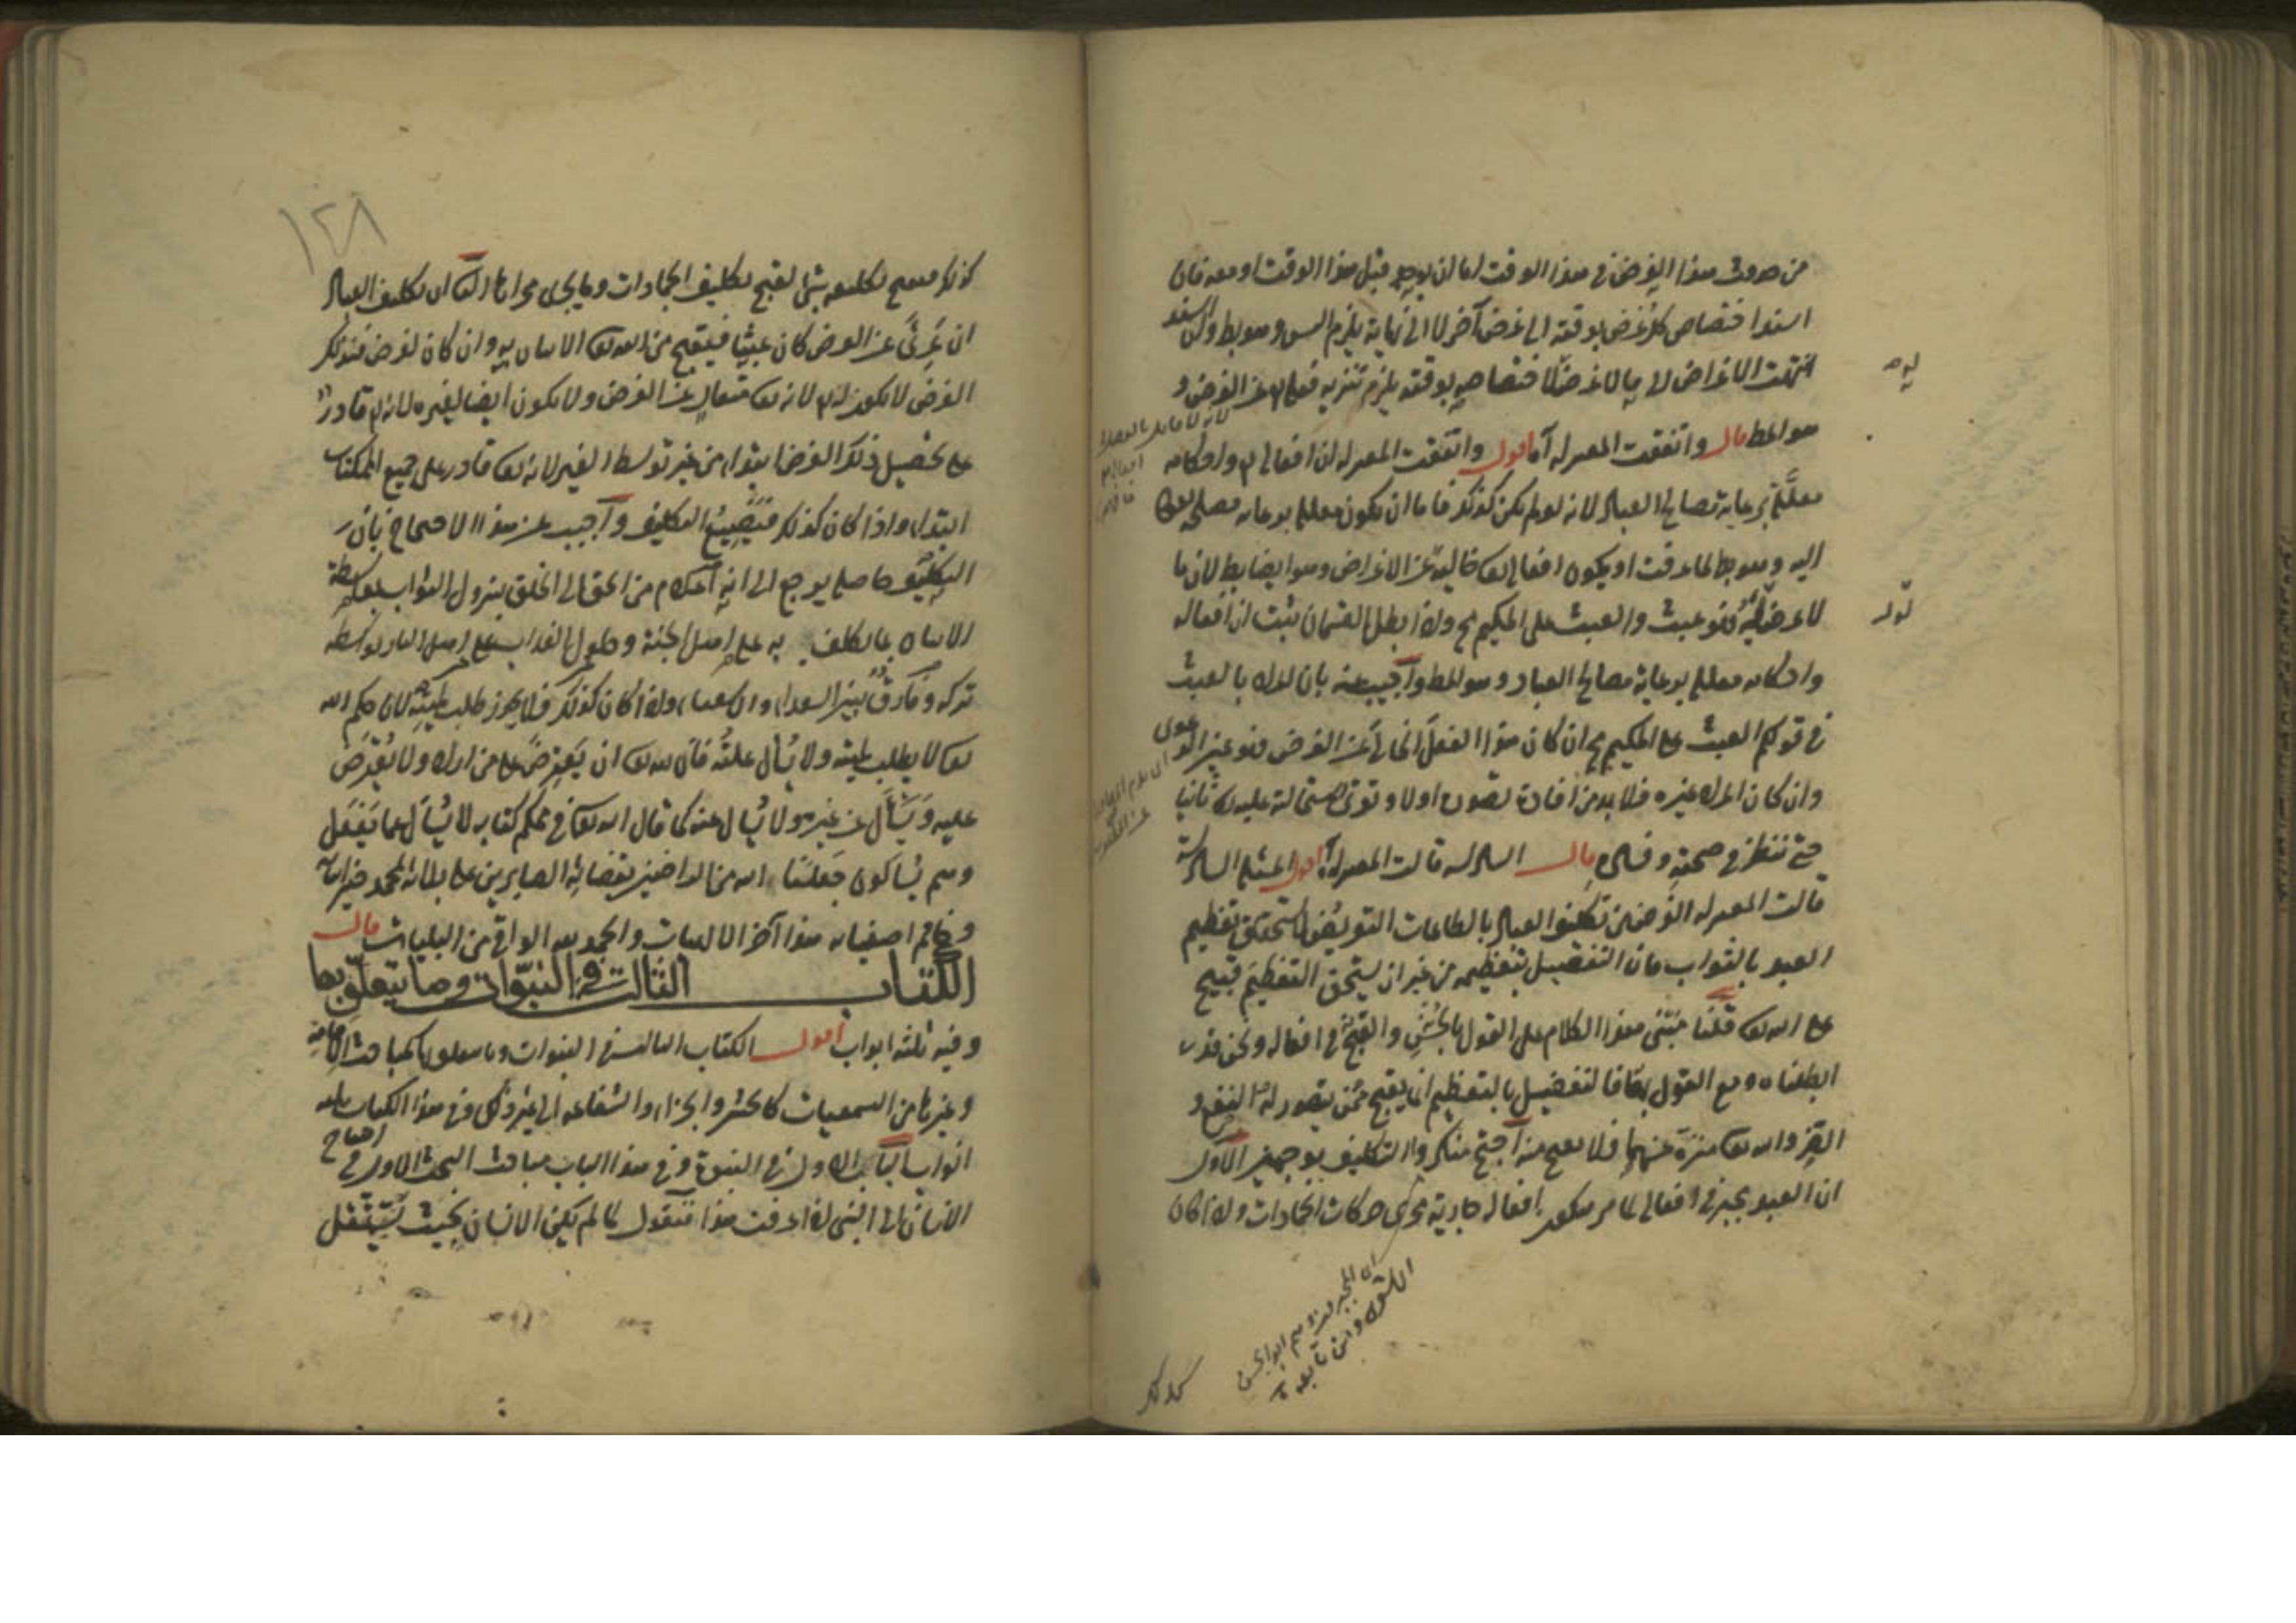 من حدوث هذا الغرض في هذا الوقت اما ان يوجد قبل هذا الوقت او معه فان
اسند اختصاص كل غرض بوقته الى غرض آخر لا الى نهاية يلزم التس وهو بط وان
انتهت الاغراض الى ما لا غرض لاختصاصه بوقته يلزم تنزيه فعله عن الغرض و
هو المط قال واتفقت المعتزلة آه اقول واتفقت المعتزلة ان افعاله واحكامه
معللة برعاية مصالح العباد لانه لو لم يكن كذلك فاما ان يكون معللا برعاية مصلحة
اليه وهو بط لما عرفت او يكون افعاله تعا خالية عن الاغراض وهو ايضا بط لان ما
لا غرض له فهو عبث والعبث على الحكيم مح واذا بطل القسمان ثبت ان افعاله
واحكامه معللة برعاية مصالح العباد وهو المط واجيب عنه بان المراد بالعبث
في قولكم العبث على الحكيم مح ان كان هذا الفعل الخالي عن الغرض فهو عين الدعوى
وان كان المراد غيره فلا بد من افادة تصوره اولا و استحالة عليه تعا ثانيا
حتى ننظر في صحته وفساده قال السادسة قالت المعتزلة آه اقول المسئلة السادسة
قالت المعتزلة الغرض من تكليف العباد بالطاعات التعريض لاستحقاق تعظيم
العبد بالثواب فان التفضيل بتعظيمه من غير ان يستحق التعظيم قبيح
على الله تعا قلنا مبنى هذا الكلام على القول بالحسن والقبح في افعاله ونحن قد
ابطلناه ومع القول به فالتفضيل بالتعظيم انما يقبح ممن يتصور له النفع و
الضر والله تعا منزه عنهما فلا يقبح منه احتج منكروا التكليف بوجهين الاول
ان العبد مجبر في افعاله لما مر افعاله جارية مجرى حركات الجمادات واذا كان
كذلك
كذلك فيقبح تكليفه مثل قبح تكليف الجمادات وما يجرى مجراها الثاني ان تكليف العباد
ان عرى عن الغرض كان عبثا فيقبح من الله تعا الاتيان به وان كان لغرض فذلك
الغرض لا يكون له لانه تعا متعال عن الغرض ولا يكون ايضا لغيره لانه قادر
على تحصيل ذلك الغرض ابتداء من غير توسط الغير لانه تعا قادر على جميع الممكنات
ابتداء واذا كان كذلك فيضيع التكليف واجيب عن هذا الاحتجاج بان
التكليف حاصله يرجع الى انه اعلام من الحق الى الخلق بنزول الثواب بواسطة
الاتيان بما كلف به على اهل الجنة وحلول العذاب على اهل النار بواسطة
تركه وفارق بين السعداء والاشقياء واذا كان كذلك فلا يجوز طلب لميته لان حكم الله
تعا لا يطلب لميته ولا يسأل علته فان لله تعا ان يعترض على من اراد ولا يعترض
عليه ويسأل عن غيره ولا يسأل عنه كما قال الله تعا في محكم كتابه لا يسأل عما يفعل
وهم يسألون جعلنا الله من الراضين بقضائه الصابرين على بلائه بمحمد خير انبيائه
وخاتم اصفيائه هذا آخر الالهيات والحمد لله الواقي من البليات قال
الكتاب الثالث في النبوات وما يتعلق بها
وفيه ثلثة ابواب اقول الكتاب الثالث في النبوات وما يتعلق بها كمباحث الامامة
وغيرها من السمعيات كالحشر والجزاء والشفاعة الى غير ذلك وفي هذا الكتاب ثلثة
ابواب الباب الاول في النبوة وفي هذا الباب مباحث البحث الاول في احتياج
الانسان الى النبي اذا عرفت هذا فنقول لما لم يكن الانسان بحيث يستقل
١٢٨